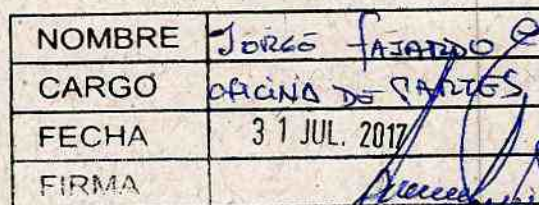 NOMBRE JORGE FAJARDO C
CARGO OFICINA DE PARTES
FECHA 31 JUL. 2017
FIRMA